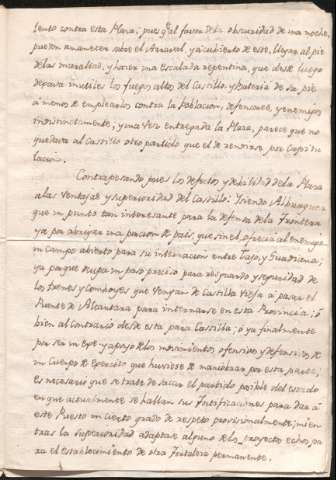 tento contra esta Plaza; pues qe. al favor de la obscuridad de una noche,
pueden amanecer sobre el Arraval, y à cubierto de este, llegar al pie
de las murallas, y hacer una Escalada repentina, que desde luego
dejava inutiles los fuegos altos del Castillo y Bateria de su pie
a menos de emplearlos contra la Poblacion, defensores, y enemigos
indistinctamente, y una vez entregada la Plaza, parece que no
quedara al Castillo otro partido que el de rendirse por Capitu
lacion.
Contrapesando pues los defectos y debilidad de la Plaza
a las Ventajas y superioridad del Castillo: Siendo Alburquerque
que un punto tan interesante para la defensa de la Frontera
ya por abrigar una porcion de país, que sin el ofrecia al enemigo
un Campo abierto para su internacion entre Tajo, y Guadiana;
ya porque ocupa un paso preciso para resguardo y seguridad de
los trenes y comboyes que vengan de Castilla Vieja a pasar el
Puente de Alcantara para internarse en esta Provincia; ó
bien al contrario desde esta para Castilla; ó ya finalmente
por ser un Exe y apoyo de los movimientos ofensivos y defensivos de
un Cuerpo de Exercito que huviese de maniobrar por esta parte;
Es necesario que se trate de sacar el partido posible del estado
en que actualmente se hallan sus Fortificaciones para dar à
este Puesto un cierto grado de respeto provisionalmente; mien
tras la Superioridad adaptase alguno de los proyectos echos, pa
ra el establecimiento de otra Fortaleza permanente.